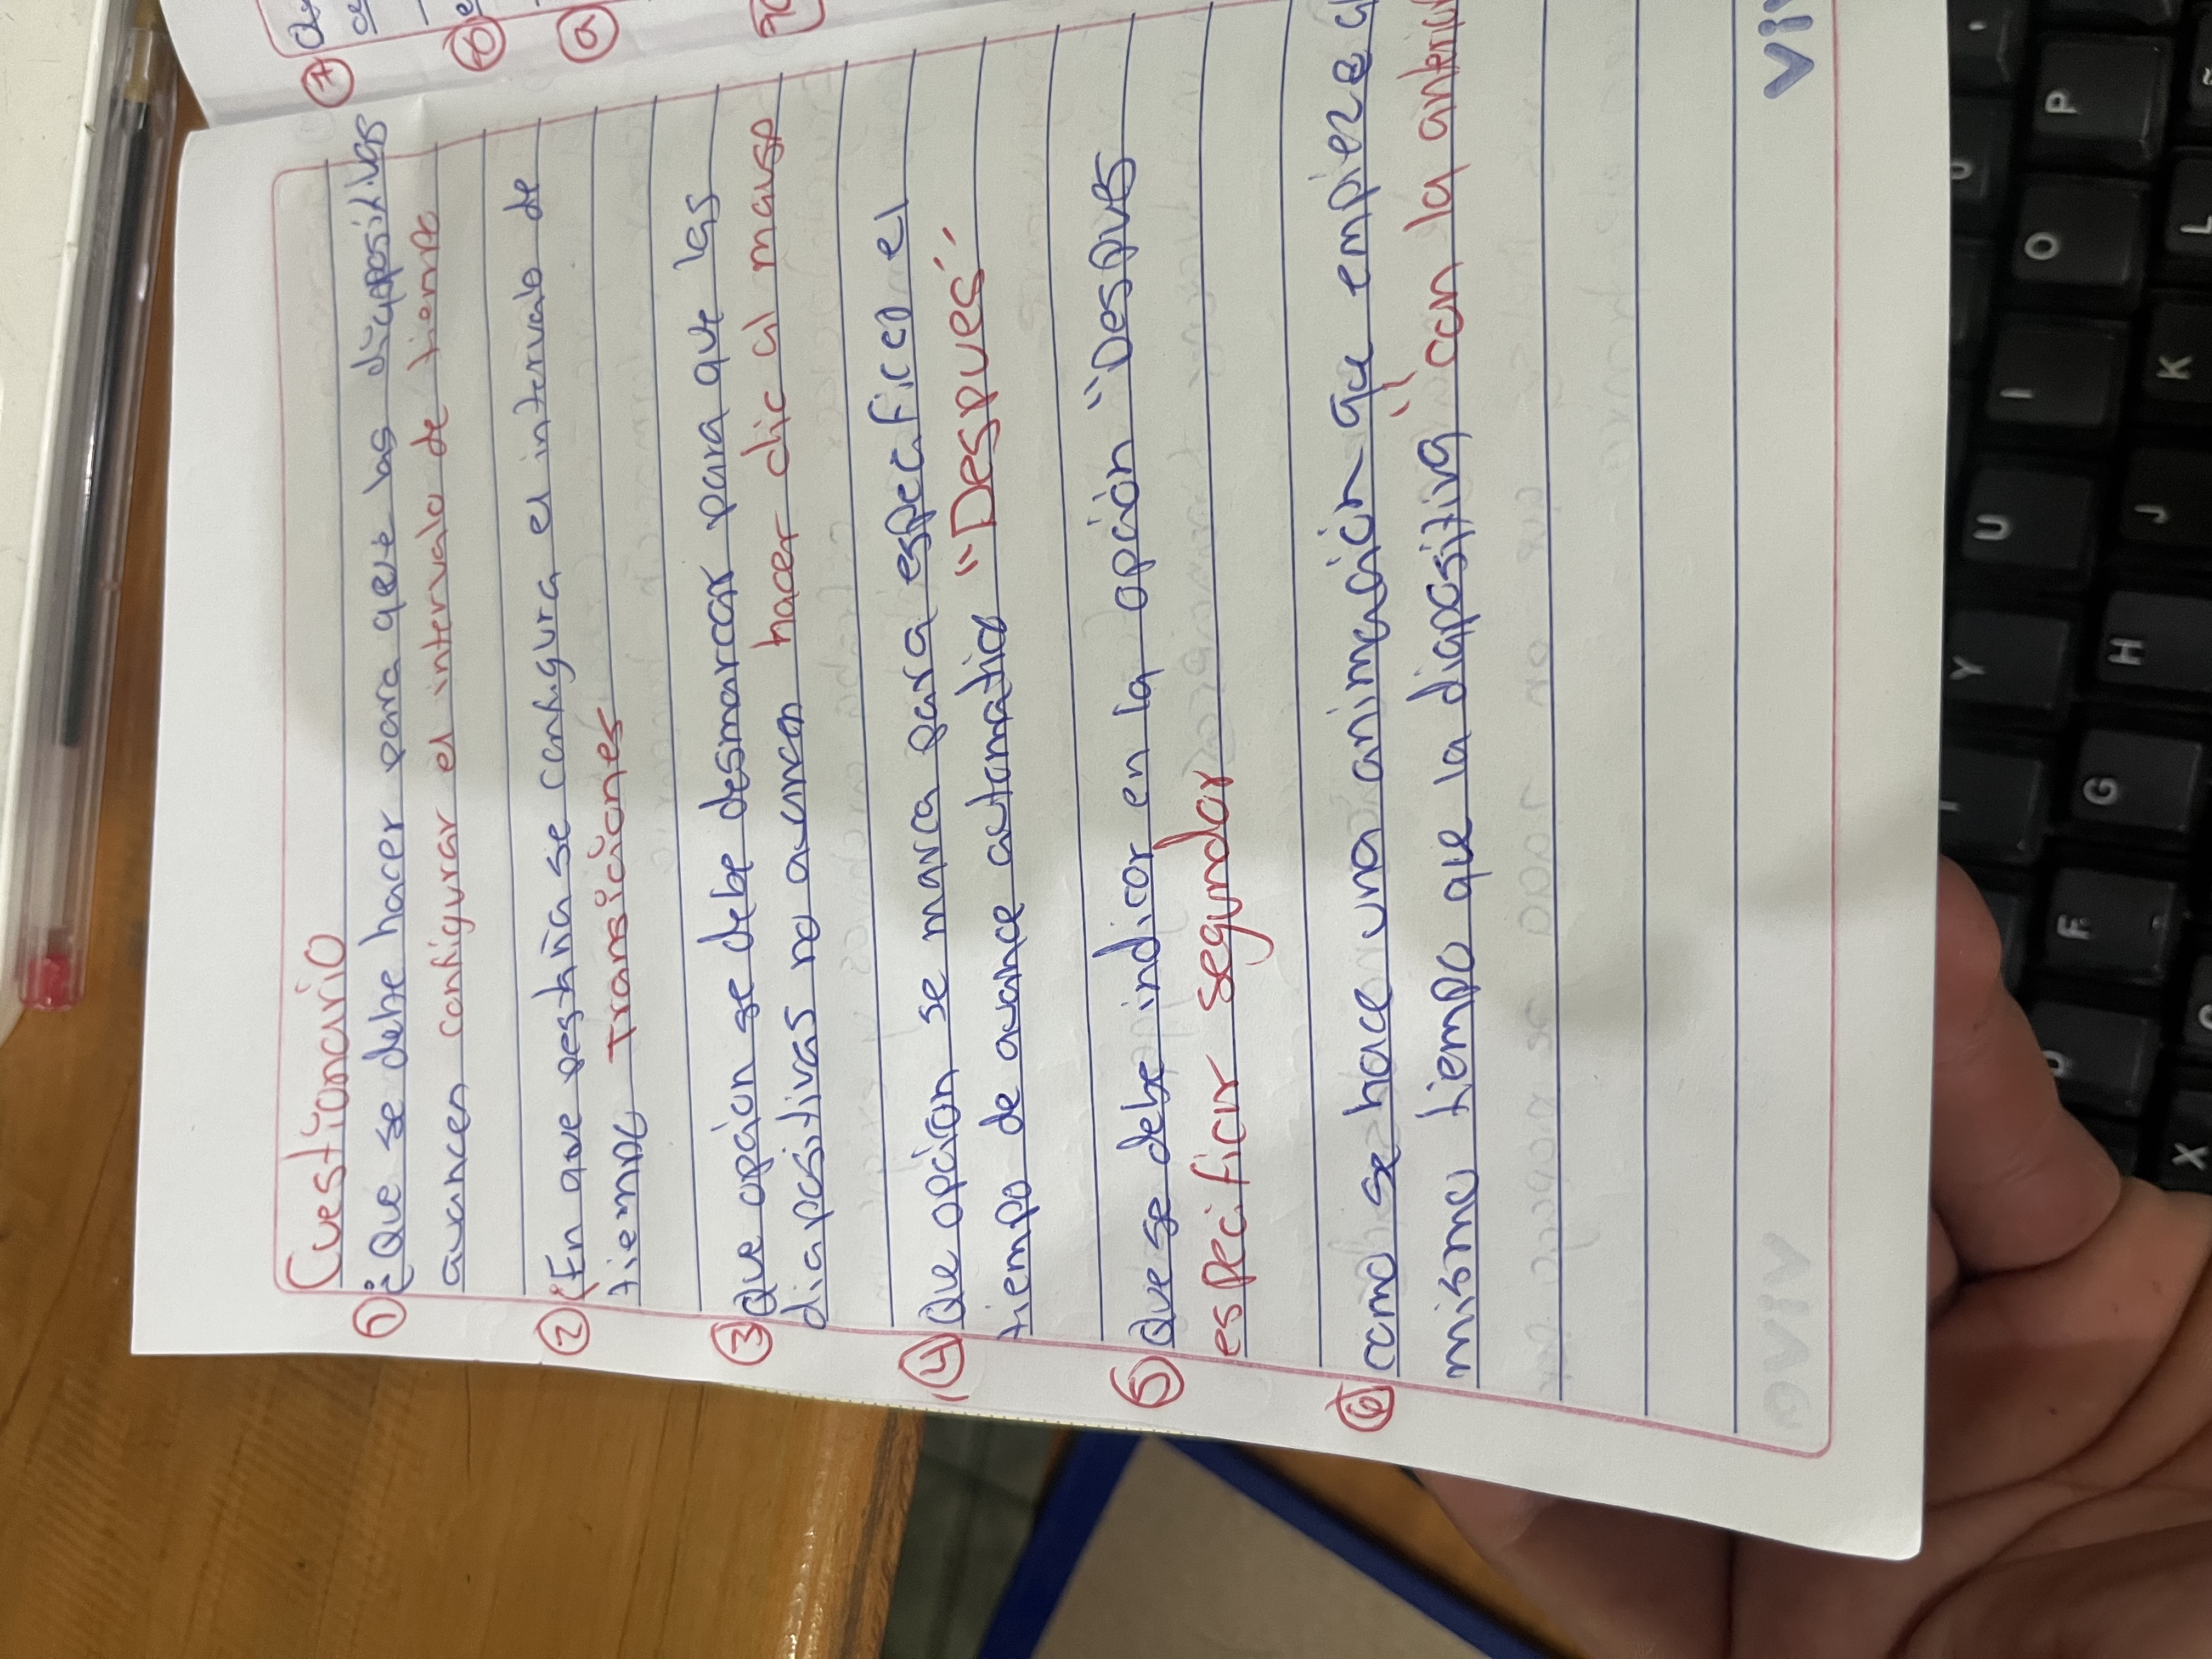 Cuestionario
① ¿Que se debe hacer para que las diapositivas
avancen configurar el intervalo de tiempo
② ¿En que pestaña se configura el intervalo de
tiempo Transiciones
③ Que opcion se debe desmarcar para que las
diapositivas no avancen hacer clic al mause
④ Que opcion se marca para especificar el
tiempo de avance automatico "Después"
⑤ Que se debe indicar en la opción "Despues
especificar segundor
⑥ como se hace una animación que empieza al
mismo tiempo que la diapositiva "con la anterior
⑦
⑧
⑨
10
P
O
I
U
Y
L
K
J
H
G
F
D
X
viv